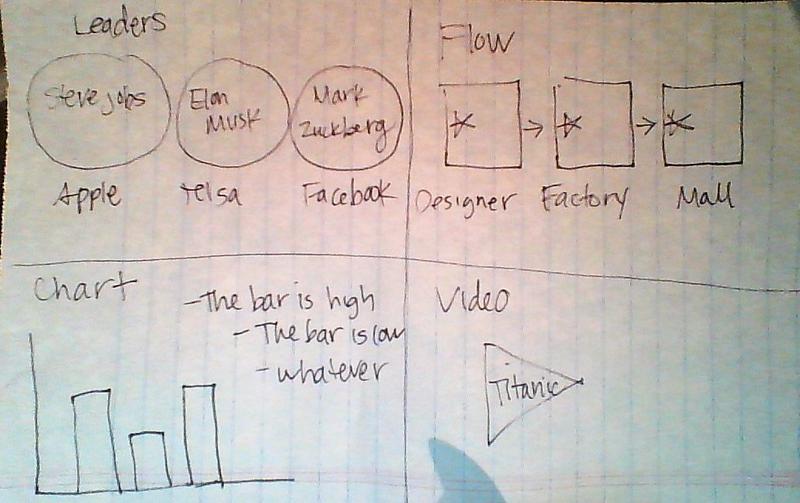 Leaders
Steve jobs
Elon
Musk
Mark
Zuckberg
Apple
telsa
Facebook
Flow
Designer
Factory
Mall
Chart
-The bar is high
- The bar is low
- whatever
Video
Titanic